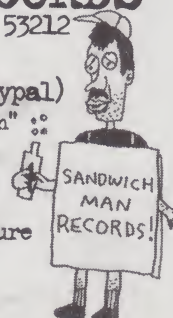 53212
ypal)
n"
SANDWICH
MAN
RECORDS!
ure